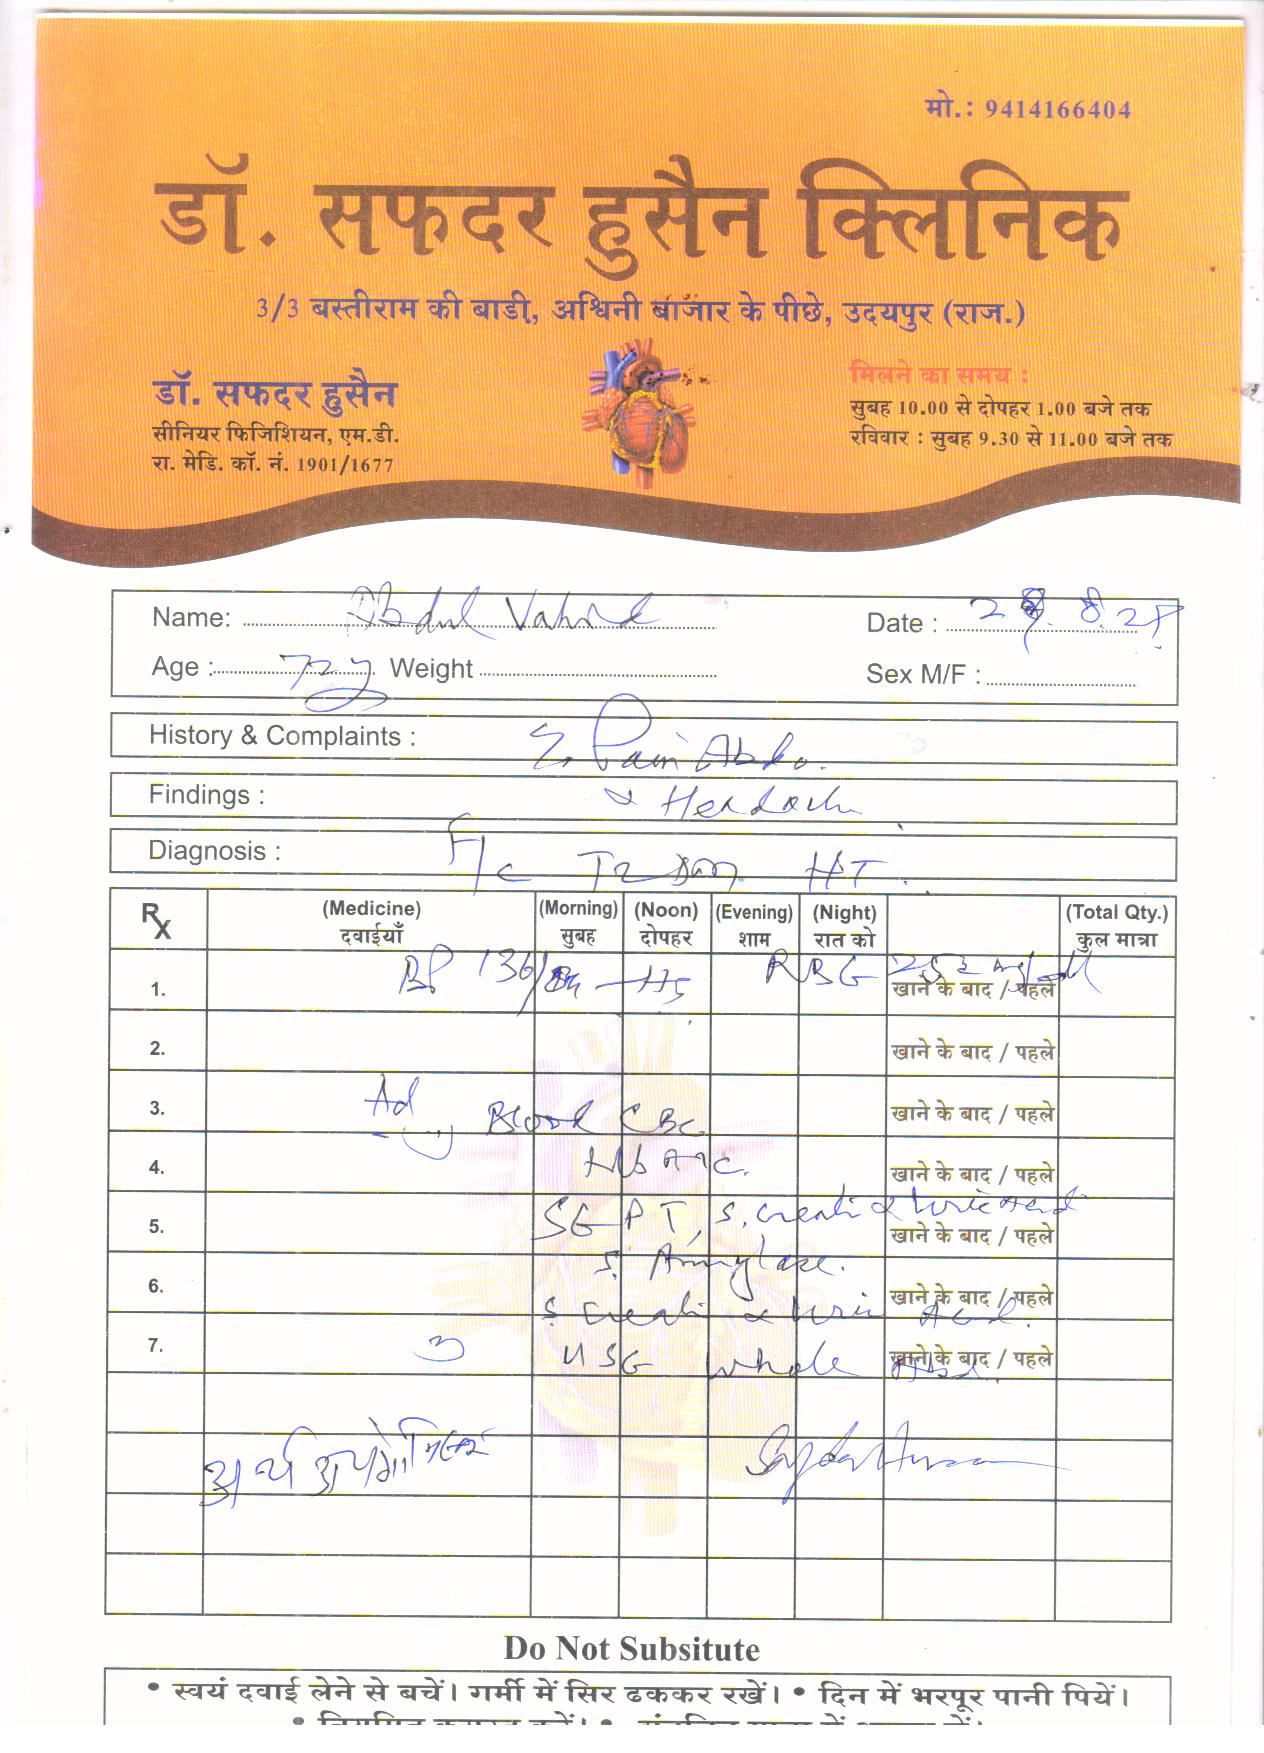 मो.: 9414166404
डॉ. सफदर हुसैन क्लिनिक
3/3 बस्तीराम की बाडी, अश्विनी बाजार के पीछे, उदयपुर (राज.)
डॉ. सफदर हुसैन
सीनियर फिजिशियन, एम.डी.
रा. मेडि. कॉ. नं. 1901/1677
मिलने का समय :
सुबह 10.00 से दोपहर 1.00 बजे तक
रविवार : सुबह 9.30 से 11.00 बजे तक
Name: Abdul Vahid Date :
Age : 72y Weight Sex M/F :
History & Complaints : Pain Abdo.
Findings : & Headache
Diagnosis : F/c T2 HT.
Rx (Medicine) (Morning) (Noon) (Evening) (Night) (Total Qty.)
दवाईयाँ सुबह दोपहर शाम रात को कुल मात्रा
1. BP 136/ RBG खाने के बाद / पहले
2. खाने के बाद / पहले
3. Ad Blood CBC खाने के बाद / पहले
4. HbA1c. खाने के बाद / पहले
5. SGPT, S. Creati & Uric Acid खाने के बाद / पहले
S. Amylase.
6. खाने के बाद / पहले
S. Creati & Uric Acid.
7. USG Whole Abd. खाने के बाद / पहले
Do Not Subsitute
• स्वयं दवाई लेने से बचें। गर्मी में सिर ढककर रखें। • दिन में भरपूर पानी पियें।